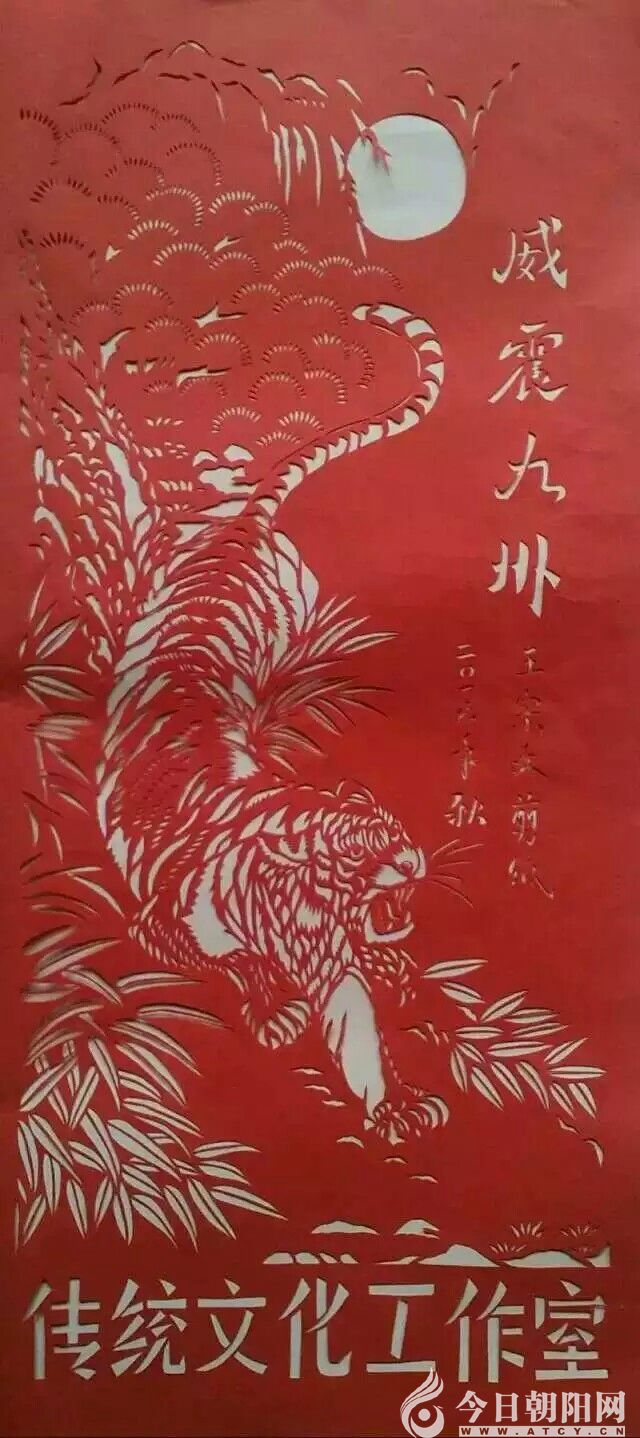 威震九州
王宗文剪纸
二〇一六年秋
传统文化工作室
今日朝阳网
WWW.ATCY.CN